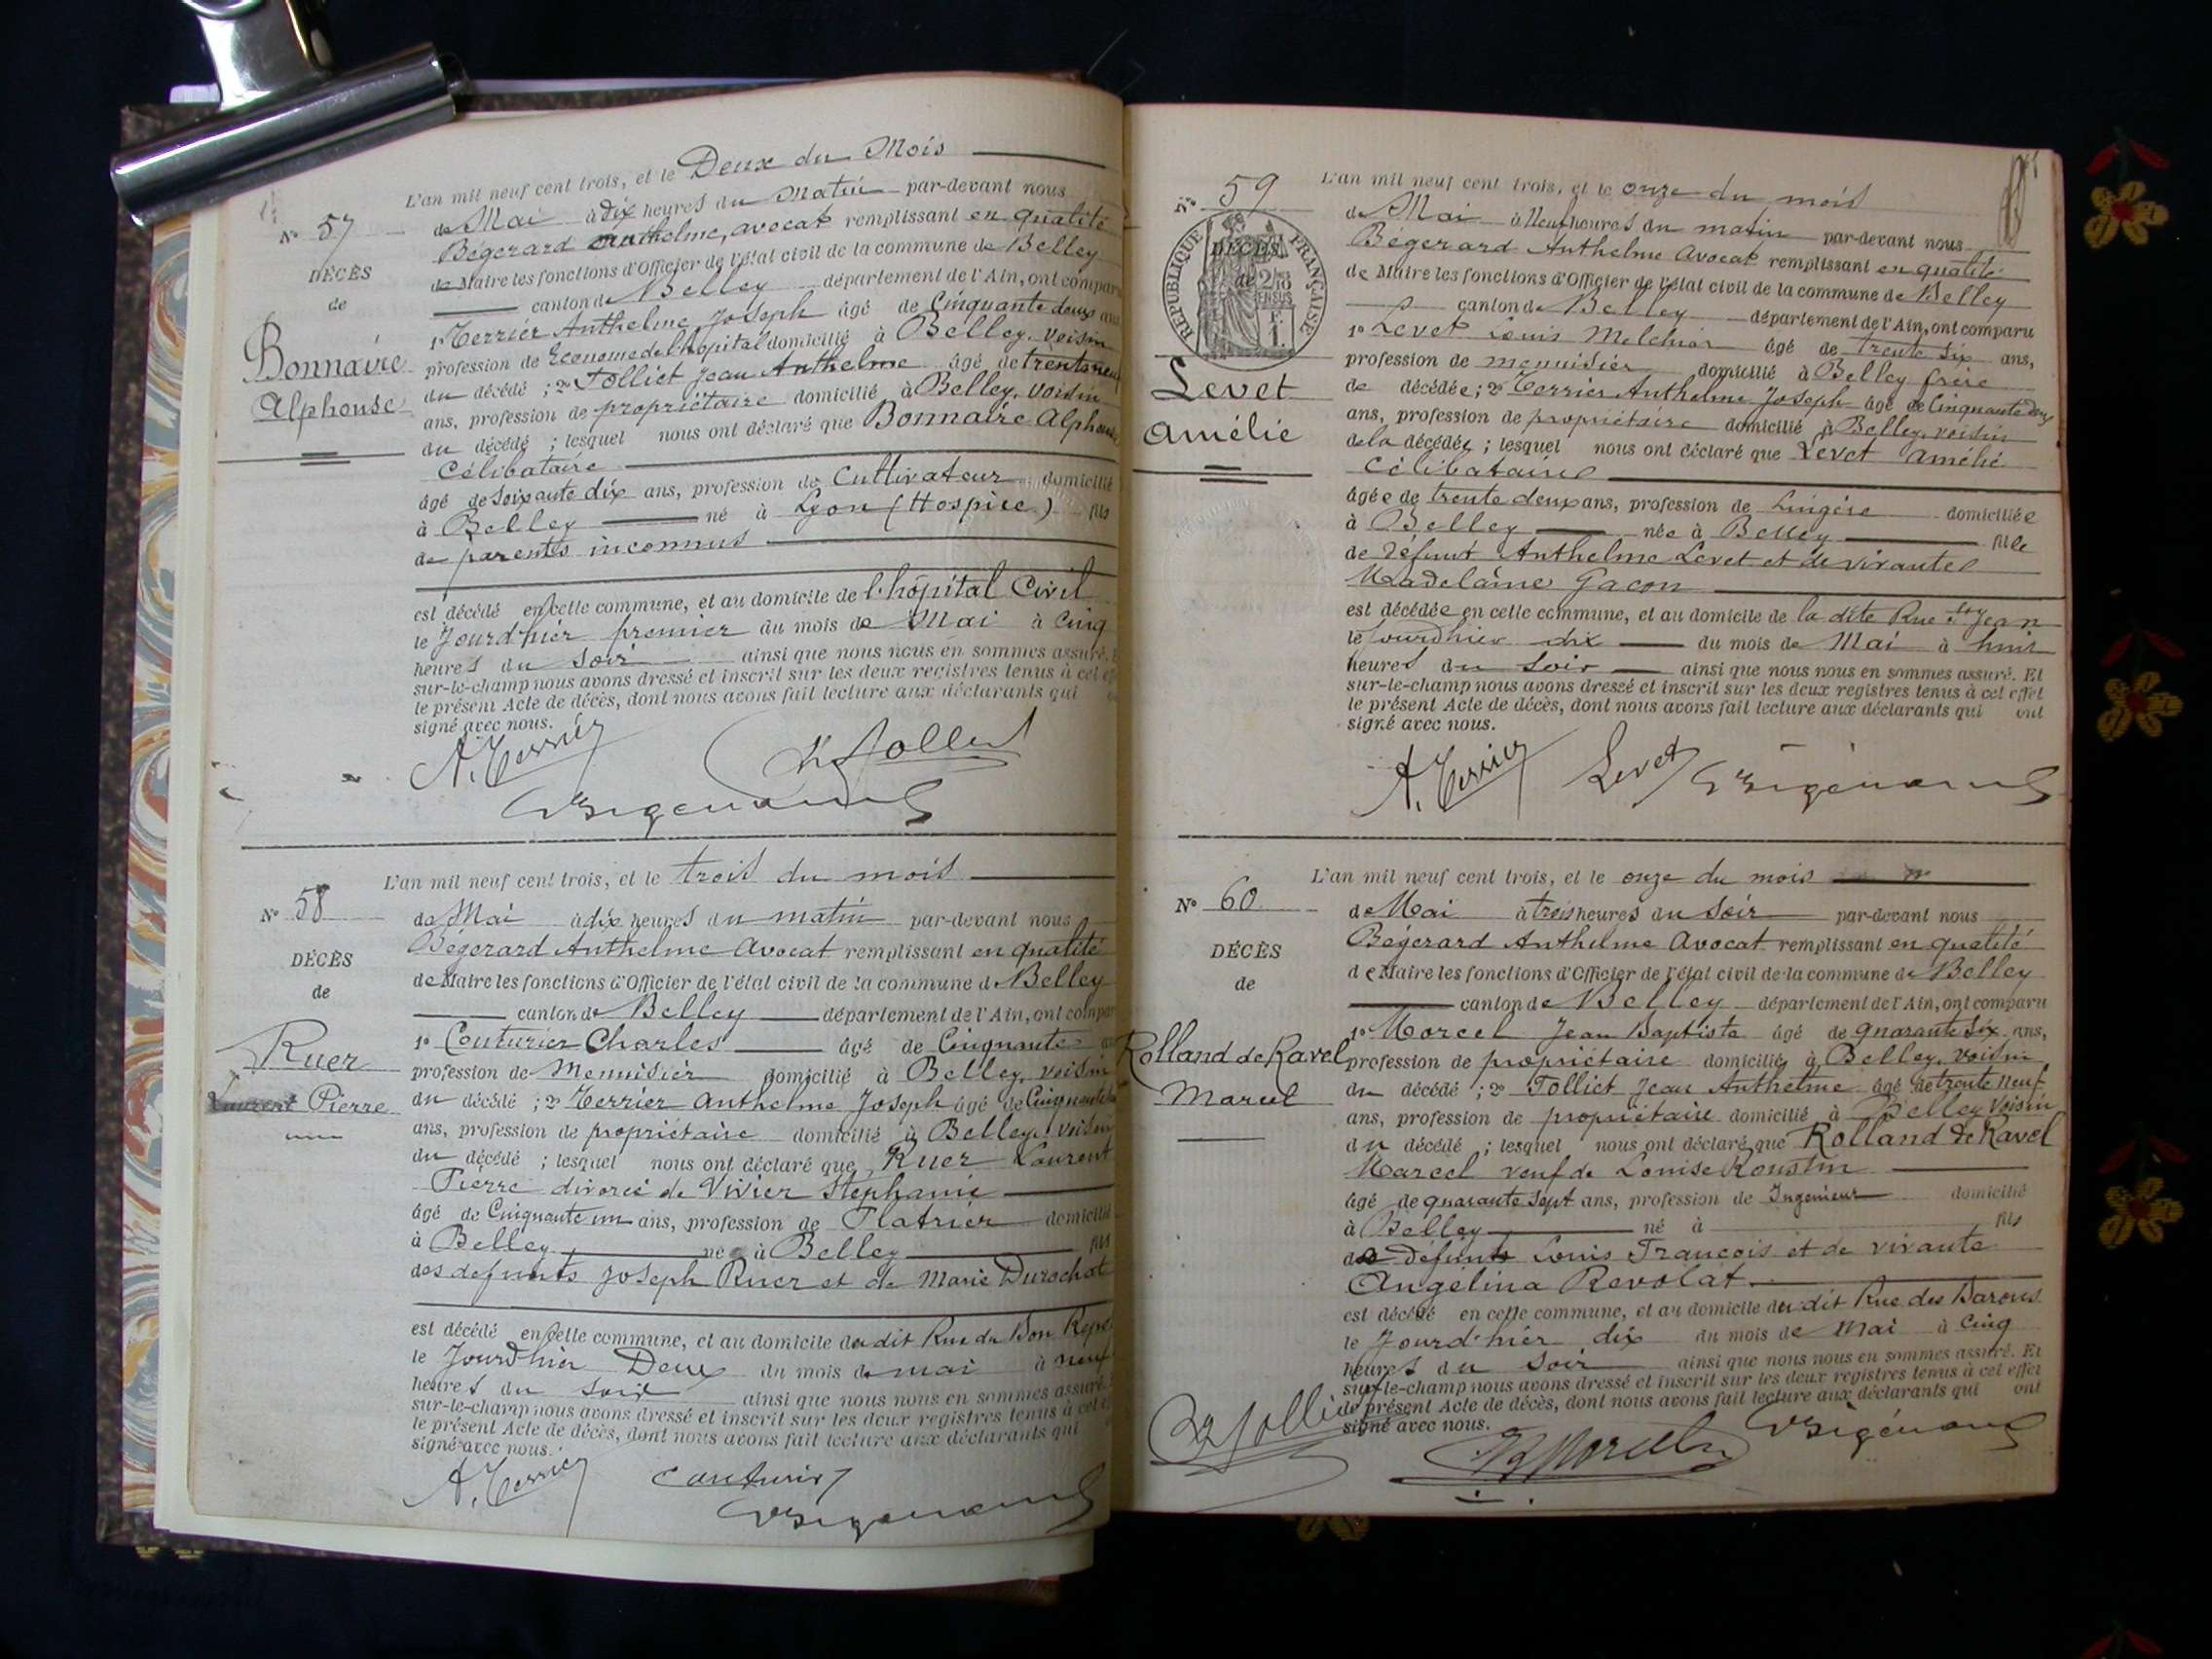 L'an mil neuf cent trois, et le Deux du Mois
N° 57
de Mai à dix heures du Matin par-devant nous
Bégerard Anthelme, avocat remplissant en qualité
DÉCÈS
de Maire les fonctions d'Officier de l'état civil de la commune de Belley
de
canton de Belley département de l'Ain, ont comparu
1° Terrier Anthelme Joseph âgé de Cinquante deux ans
Bonnaire
profession de Econome de l'hôpital domicilié à Belley, voisin
Alphonse
du décédé ; 2° Tolliet Jean Anthelme âgé de trente neuf
ans, profession de propriétaire domicilié à Belley, voisin
du décédé ; lesquel nous ont déclaré que Bonnaire Alphonse
Célibataire
âgé de soixante dix ans, profession de Cultivateur domicilié
à Belley né à Lyon (Hospice) fils
de parents inconnus
est décédé en cette commune, et au domicile de l'hôpital Civil
le Jourd'hier premier du mois de Mai à Cinq
heures du soir ainsi que nous nous en sommes assuré. Et
sur-le-champ nous avons dressé et inscrit sur les deux registres tenus à cet effet
le présent Acte de décès, dont nous avons fait lecture aux déclarants qui
signé avec nous.
A. Terrier
L'an mil neuf cent trois, et le trois du mois
N° 58
de Mai à dix heures du matin par-devant nous
Bégerard Anthelme Avocat remplissant en qualité
DÉCÈS
de Maire les fonctions d'Officier de l'état civil de la commune de Belley
de
canton de Belley département de l'Ain, ont comparu
1° Couturier Charles âgé de Cinquante ans
Ruer
profession de Menuisier domicilié à Belley, voisin
Laurent Pierre
du décédé ; 2° Terrier Anthelme Joseph âgé de Cinquante
ans, profession de propriétaire domicilié à Belley, voisin
du décédé ; lesquel nous ont déclaré que Ruer Laurent
Pierre divorcé de Vivier Stéphanie
âgé de Cinquante un ans, profession de Platrier domicilié
à Belley né à Belley fils
des defunts Joseph Ruer et de Marie Durochat
est décédé en cette commune, et au domicile du dit Rue du Bon Repos
le Jourd'hier Deux du mois de mai à neuf
heures du soir ainsi que nous nous en sommes assuré.
sur-le-champ nous avons dressé et inscrit sur les deux registres tenus à cet
le présent Acte de décès, dont nous avons fait lecture aux déclarants qui
signé avec nous.
A. Terrier Couturier
L'an mil neuf cent trois, et le onze du mois
N° 59
de Mai à Neuf heures du matin par-devant nous
Bégerard Anthelme Avocat remplissant en qualité
RÉPUBLIQUE FRANÇAISE
DÉCÈS
de Maire les fonctions d'Officier de l'état civil de la commune de Belley
de
2/10 EN SUS
1 F.
canton de Belley département de l'Ain, ont comparu
1° Levet Louis Melchior âgé de trente six ans,
profession de menuisier domicilié à Belley frère
Levet
de décédée ; 2° Terrier Anthelme Joseph âgé de Cinquante deux
Amélie
ans, profession de propriétaire domicilié à Belley, voisin
de la décédée ; lesquel nous ont déclaré que Levet Amélie
Célibataire
âgée de trente deux ans, profession de Lingère domiciliée
à Belley née à Belley fille
de défunt Anthelme Levet et de vivante
Madelaine Gacon
est décédée en cette commune, et au domicile de la dite Rue St Jean
le jourdhier dix du mois de Mai à huit
heures du soir ainsi que nous nous en sommes assuré. Et
sur-le-champ nous avons dressé et inscrit sur les deux registres tenus à cet effet
le présent Acte de décès, dont nous avons fait lecture aux déclarants qui ont
signé avec nous.
A. Terrier Levet
L'an mil neuf cent trois, et le onze du mois
N° 60
de Mai à trois heures du Soir par-devant nous
Bégerard Anthelme Avocat remplissant en qualité
DÉCÈS
de Maire les fonctions d'Officier de l'état civil de la commune de Belley
de
canton de Belley département de l'Ain, ont comparu
1° Morcel Jean Baptiste âgé de quarante six ans,
Rolland de Ravel
profession de propriétaire domicilié à Belley, voisin
Marcel
du décédé ; 2° Tolliet Jean Anthelme âgé de trente neuf
ans, profession de propriétaire domicilié à Belley voisin
du décédé ; lesquel nous ont déclaré que Rolland de Ravel
Marcel veuf de Louise Roustin
âgé de quarante sept ans, profession de Ingenieur domicilié
à Belley né à fils
de défunt Louis François et de vivante
Angélina Revolat
est décédé en cette commune, et au domicile du dit Rue des Barons
le Jourd'hier dix du mois de Mai à Cinq
heures du soir ainsi que nous nous en sommes assuré. Et
sur-le-champ nous avons dressé et inscrit sur les deux registres tenus à cet effet
le présent Acte de décès, dont nous avons fait lecture aux déclarants qui ont
signé avec nous.